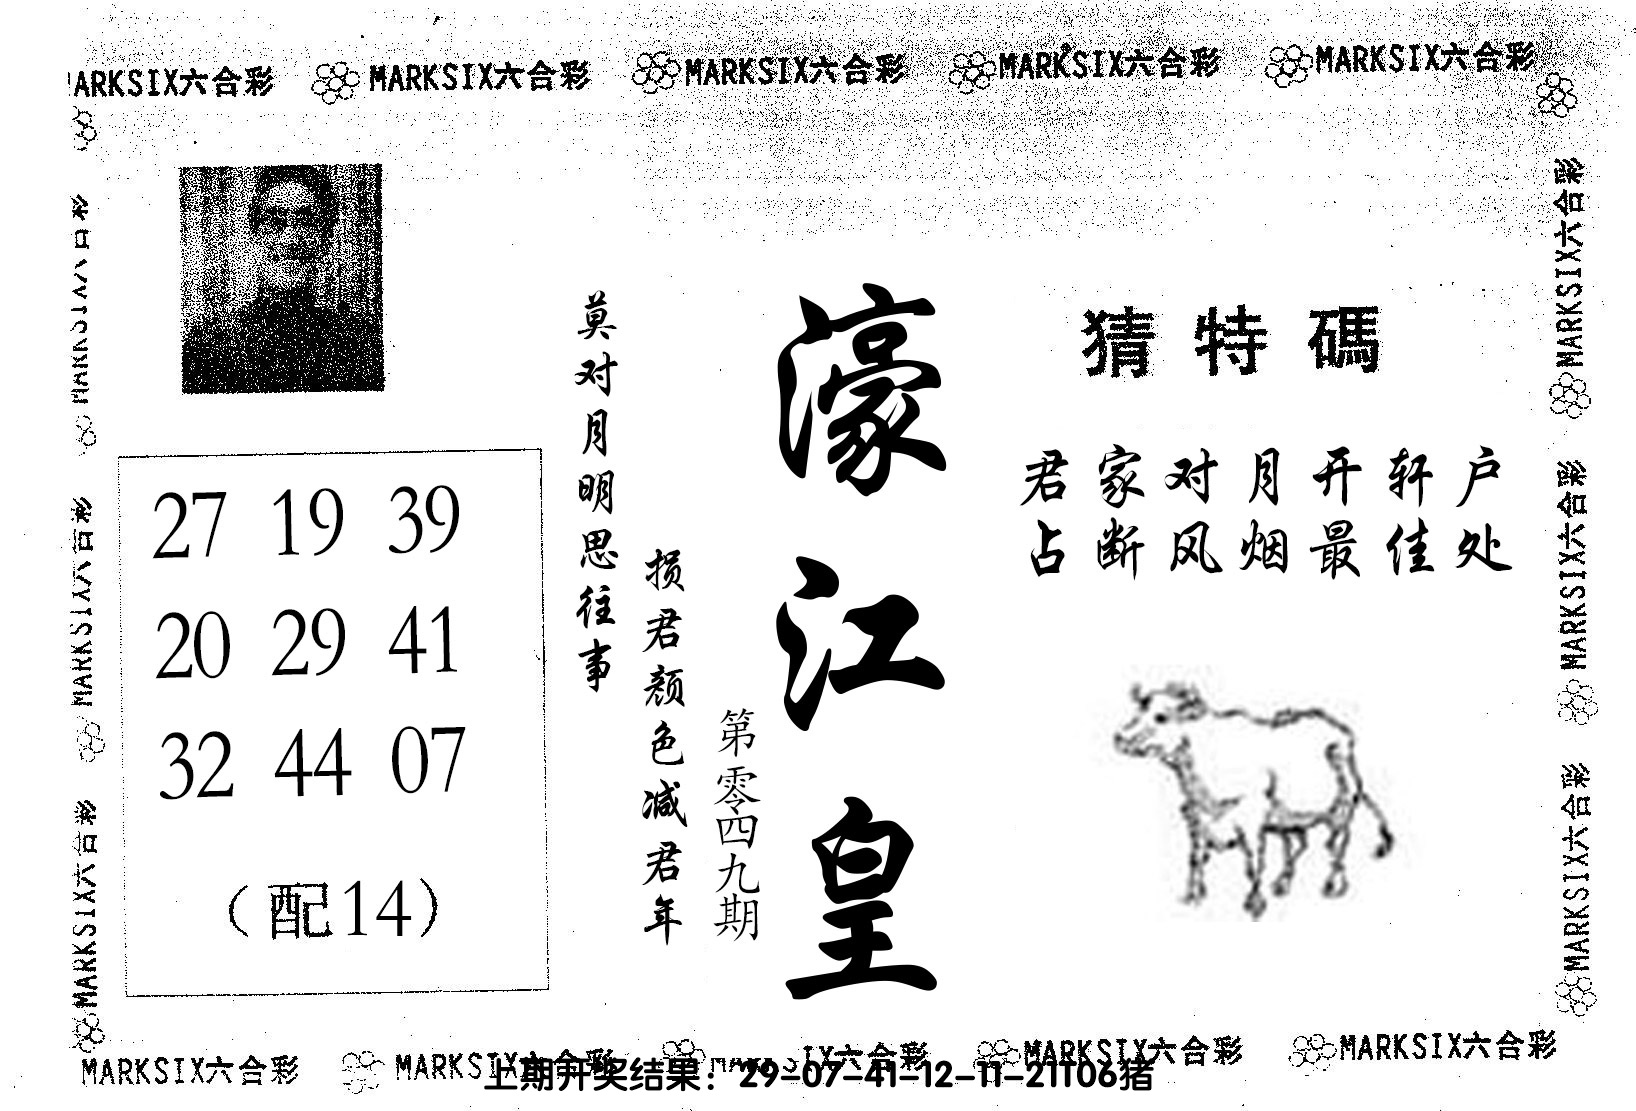 MARKSIX六合彩 MARKSIX六合彩 MARKSIX六合彩 MARKSIX六合彩 MARKSIX六合彩
猜特碼
君家对月开轩户
占断风烟最佳处
濠江皇
第零四九期
莫对月明思往事
损君颜色减君年
27 19 39
20 29 41
32 44 07
(配14)
MARKSIX六合彩
MARKSIX六合彩
MARKSIX六合彩
MARKSIX六合彩
MARKSIX六合彩
MARKSIX六合彩
MARKSIX六合彩 MARKSIX六合彩 MARKSIX六合彩 MARKSIX六合彩
上期开奖结果：29-07-41-12-11-21T06猪